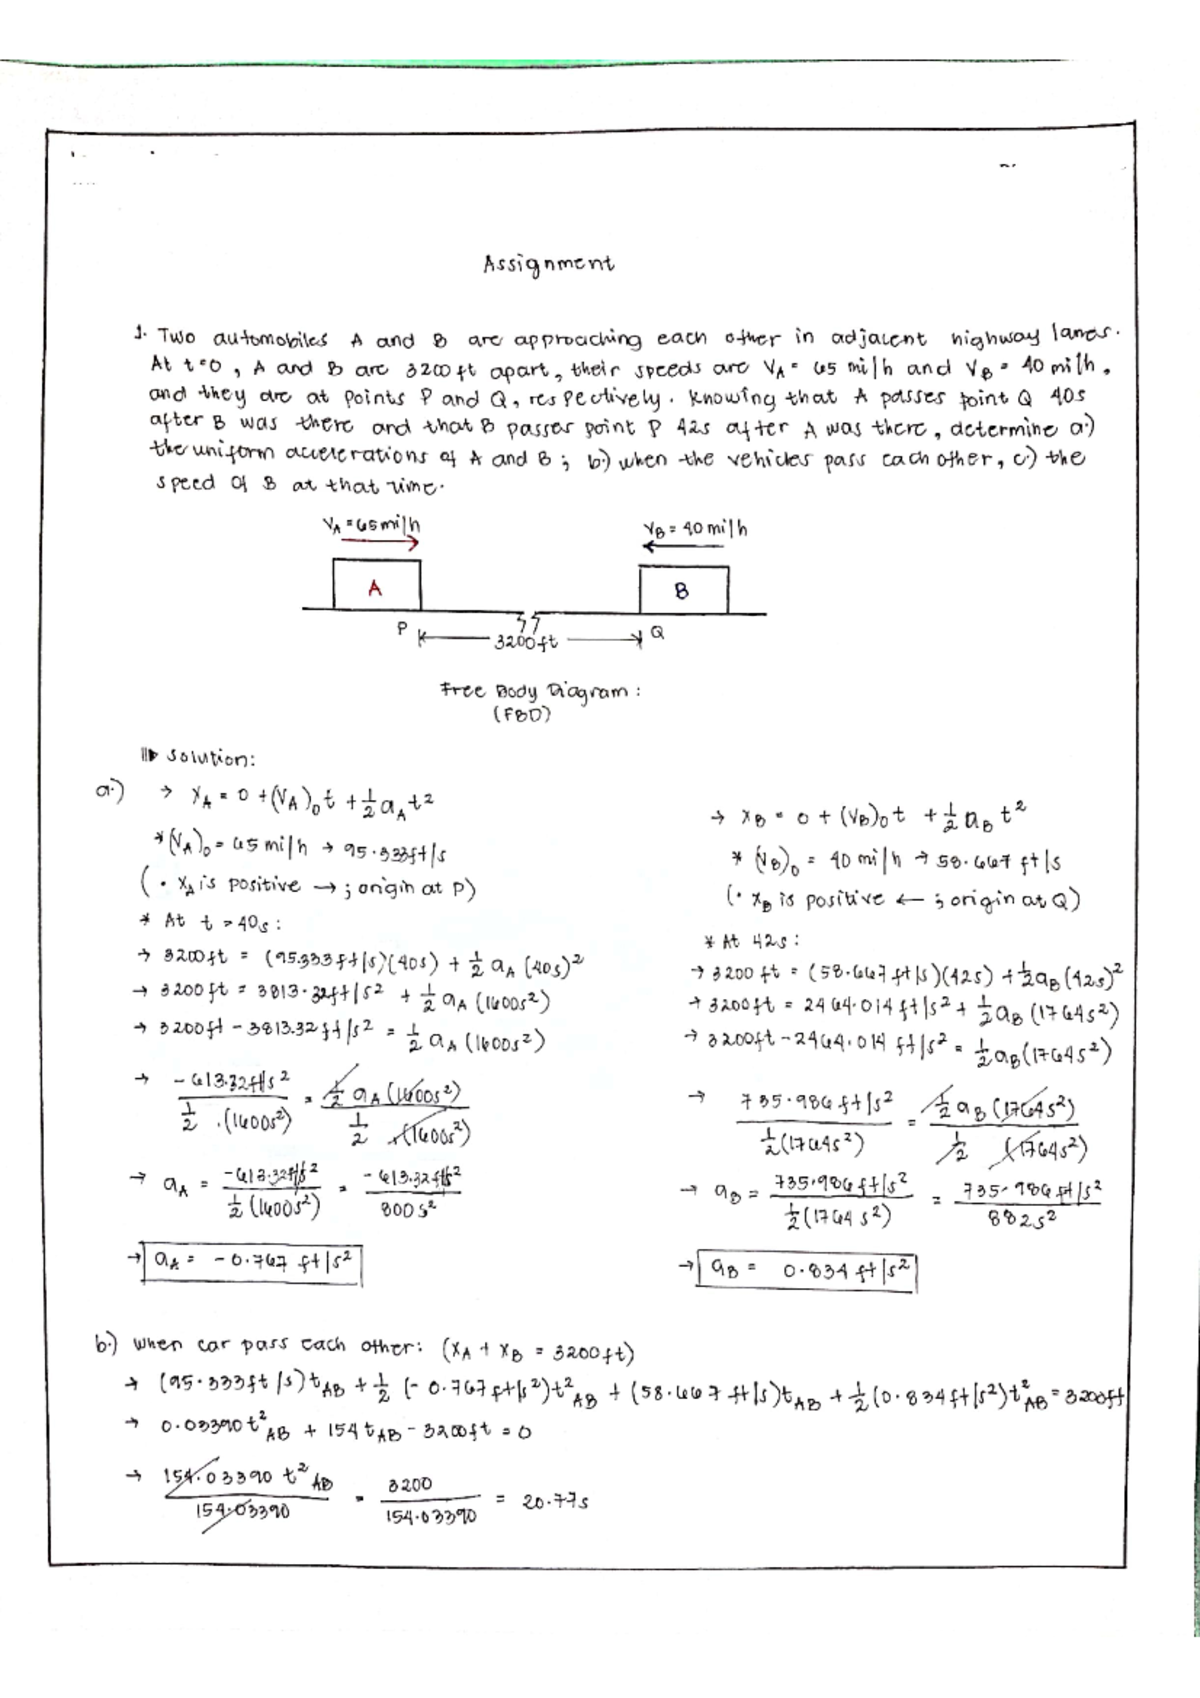 Assignment
1. Two automobiles A and B are approaching each other in adjacent highway lanes.
At t=0, A and B are 3200 ft apart, their speeds are VA = 65 mi/h and VB = 40 mi/h,
and they are at points P and Q, respectively. Knowing that A passes point Q 40s
after B was there and that B passes point P 42s after A was there, determine a.)
the uniform accelerations of A and B; b.) when the vehicles pass each other, c.) the
speed of B at that time.
VA = 65 mi/h
VB = 40 mi/h
A
B
P
3200ft
Q
Free Body Diagram:
(FBD)
Solution:
a.) → XA = 0 + (VA)0 t + 1/2 aA t²
* (VA)0 = 65 mi/h → 95.333ft/s
(• XA is positive → ; origin at P)
* At t = 40s:
→ 3200ft = (95.333ft/s)(40s) + 1/2 aA (40s)²
→ 3200ft = 3813.32ft/s² + 1/2 aA (1600s²)
→ 3200ft - 3813.32ft/s² = 1/2 aA (1600s²)
→ -613.32ft/s² / 1/2 .(1600s²) = 1/2 aA (1600s²) / 1/2 (1600s²)
→ aA = -613.32ft/s² / 1/2 (1600s²) = -613.32ft/s² / 800s²
→ aA = -0.767 ft/s²
→ XB = 0 + (VB)0 t + 1/2 aB t²
* (VB)0 = 40 mi/h → 58.667 ft/s
(• XB is positive ← ; origin at Q)
* At 42s:
→ 3200 ft = (58.667 ft/s)(42s) + 1/2 aB (42s)²
→ 3200ft = 2464.014 ft/s² + 1/2 aB (1764s²)
→ 3200ft - 2464.014 ft/s² = 1/2 aB (1764s²)
→ 735.986 ft/s² / 1/2 (1764s²) = 1/2 aB (1764s²) / 1/2 (1764s²)
→ aB = 735.986 ft/s² / 1/2 (1764 s²) = 735.986 ft/s² / 882s²
→ aB = 0.834 ft/s²
b.) When car pass each other: (XA + XB = 3200ft)
→ (95.333ft/s) tAB + 1/2 (-0.767ft/s²) t²AB + (58.667 ft/s) tAB + 1/2 (0.834ft/s²) t²AB = 3200ft
→ 0.03390 t²AB + 154 tAB - 3200ft = 0
→ 154.03390 t²AB / 154.03390 = 3200 / 154.03390 = 20.77s